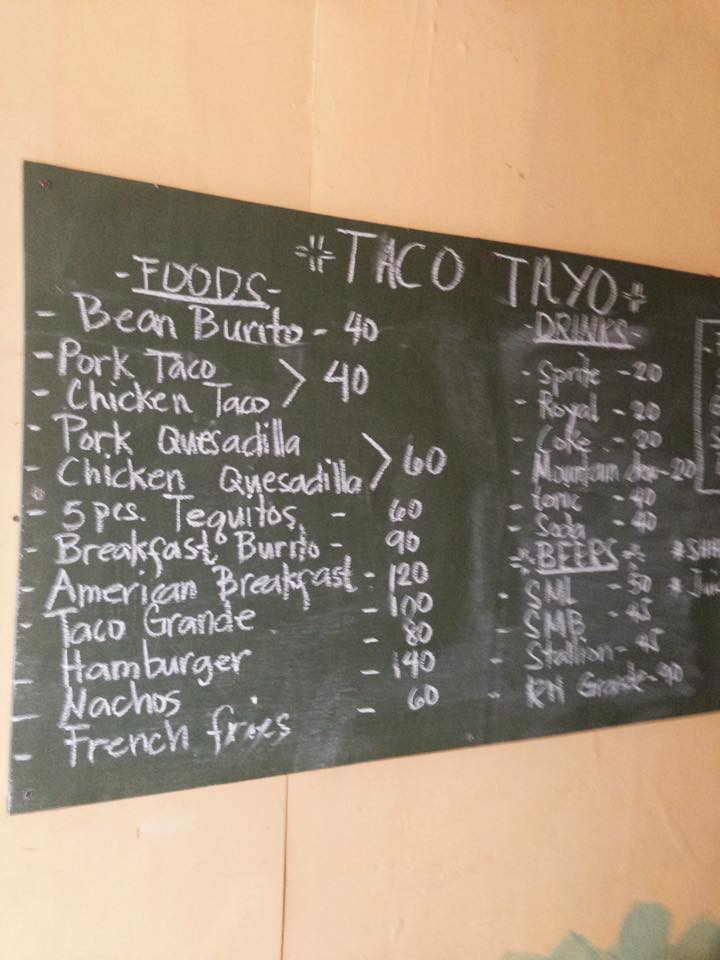 TACO TAYO
-FOODS-
- Bean Burito - 40
- Pork Taco
- Chicken Taco > 40
- Pork Quesadilla
- Chicken Quesadilla > 60
- 5 pcs. Tequitos - 60
- Breakfast Burrito - 90
- American Breakfast - 120
- Taco Grande - 100
- Hamburger - 80
- Nachos - 140
- French fries - 60
-DRINKS-
- Sprite - 20
- Royal - 20
- Coke - 20
- Mountain dew - 20
- tonic - 40
- Soda - 40
BEERS
- SML - 50
- SMB - 45
- Stallion - 45
- RH Grande - 90